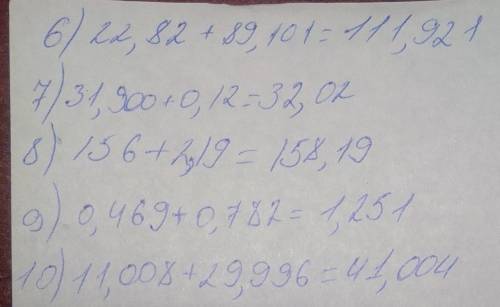 6) 22,82 + 89,101 = 111,921
7) 31,900 + 0,12 = 32,02
8) 156 + 2,19 = 158,19
9) 0,469 + 0,782 = 1,251
10) 11,008 + 29,996 = 41,004